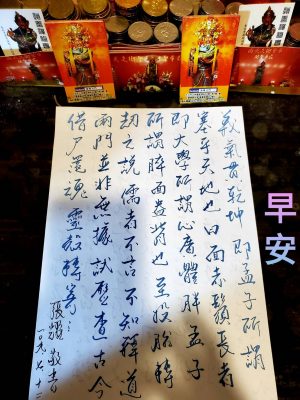 義氣貫乾坤 即孟子所謂
塞乎天地也 曰面赤鬚長者
即大學所謂心廣體胖 孟子
所謂睟面盎背也 至投胎轉
劫之說 儒者不言 不知釋道
兩門並非無據 試歷查古今
借尸還魂 靈
張耀 敬書
早安